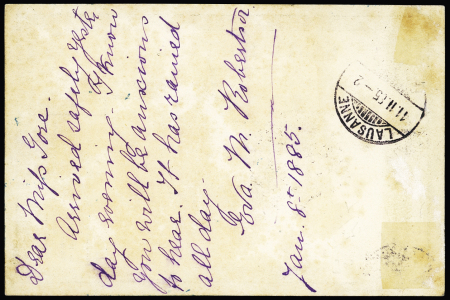 Dear Miss Gore.
Arrived safely yester
day evening. I know
you will be anxious
to hear. It has rained
all day.
Eva. M. Robertson.
Jan. 8th 1885.
LAUSANNE